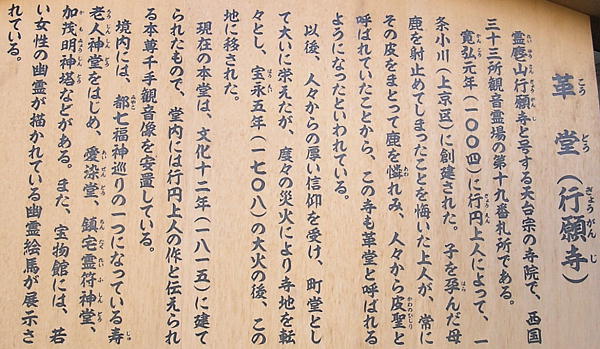 革堂（行願寺）
霊麀山行願寺と号する天台宗の寺院で、西国
三十三所観音霊場の第十九番札所である。
寛弘元年（一〇〇四）に行円上人によって、一
条小川（上京区）に創建された。子を孕んだ母
鹿を射止めてしまったことを悔いた上人が、常に
その皮をまとって鹿を憐れみ、人々から皮聖と
呼ばれていたことから、この寺も革堂と呼ばれる
ようになったといわれている。
以後、人々からの厚い信仰を受け、町堂とし
て大いに栄えたが、度々の災火により寺地を転
々とし、宝永五年（一七〇八）の大火の後、この
地に移された。
現在の本堂は、文化十二年（一八一五）に建て
られたもので、堂内には行円上人の作と伝えられ
る本尊千手観音像を安置している。
境内には、都七福神巡りの一つになっている寿
老人神堂をはじめ、愛染堂、鎮宅霊符神堂、
加茂明神塔などがある。また、宝物館には、若
い女性の幽霊が描かれている幽霊絵馬が展示さ
れている。